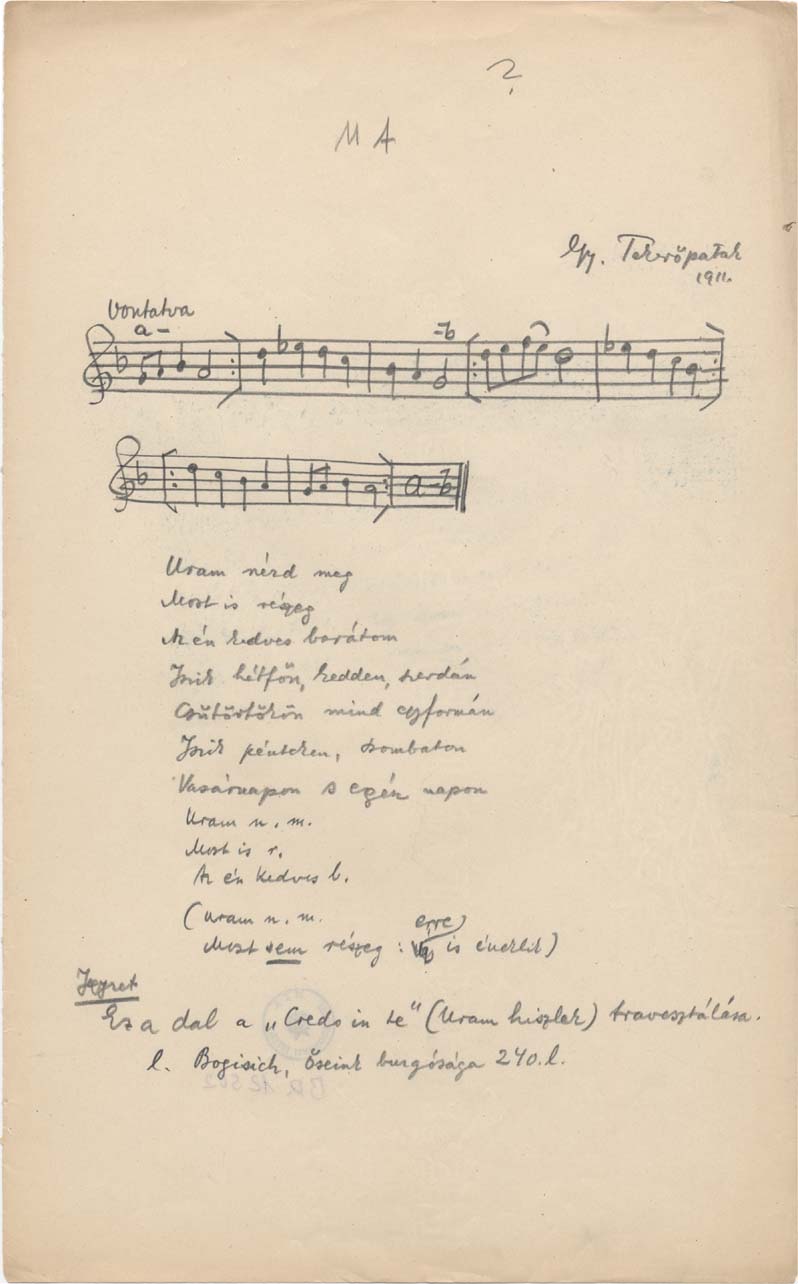 ?
M A
Gy. Tekerőpatak
1911.
Vontatva
a –
– b
a – b
Uram nézd meg
Most is részeg
Az én kedves barátom
Iszik hétfőn, kedden, szerdán
Csütörtökön mind egyformán
Iszik pénteken, szombaton
Vasárnapon s egész napon
Uram n. m.
Most is r.
Az én kedves b.
(Uram n. m.
erre
Most sem részeg : is éneklik)
Jegyzet
Ez a dal a „Credo in te" (Uram hiszlek) travesztálása.
l. Bogisich, Őseink buzgósága 240.l.